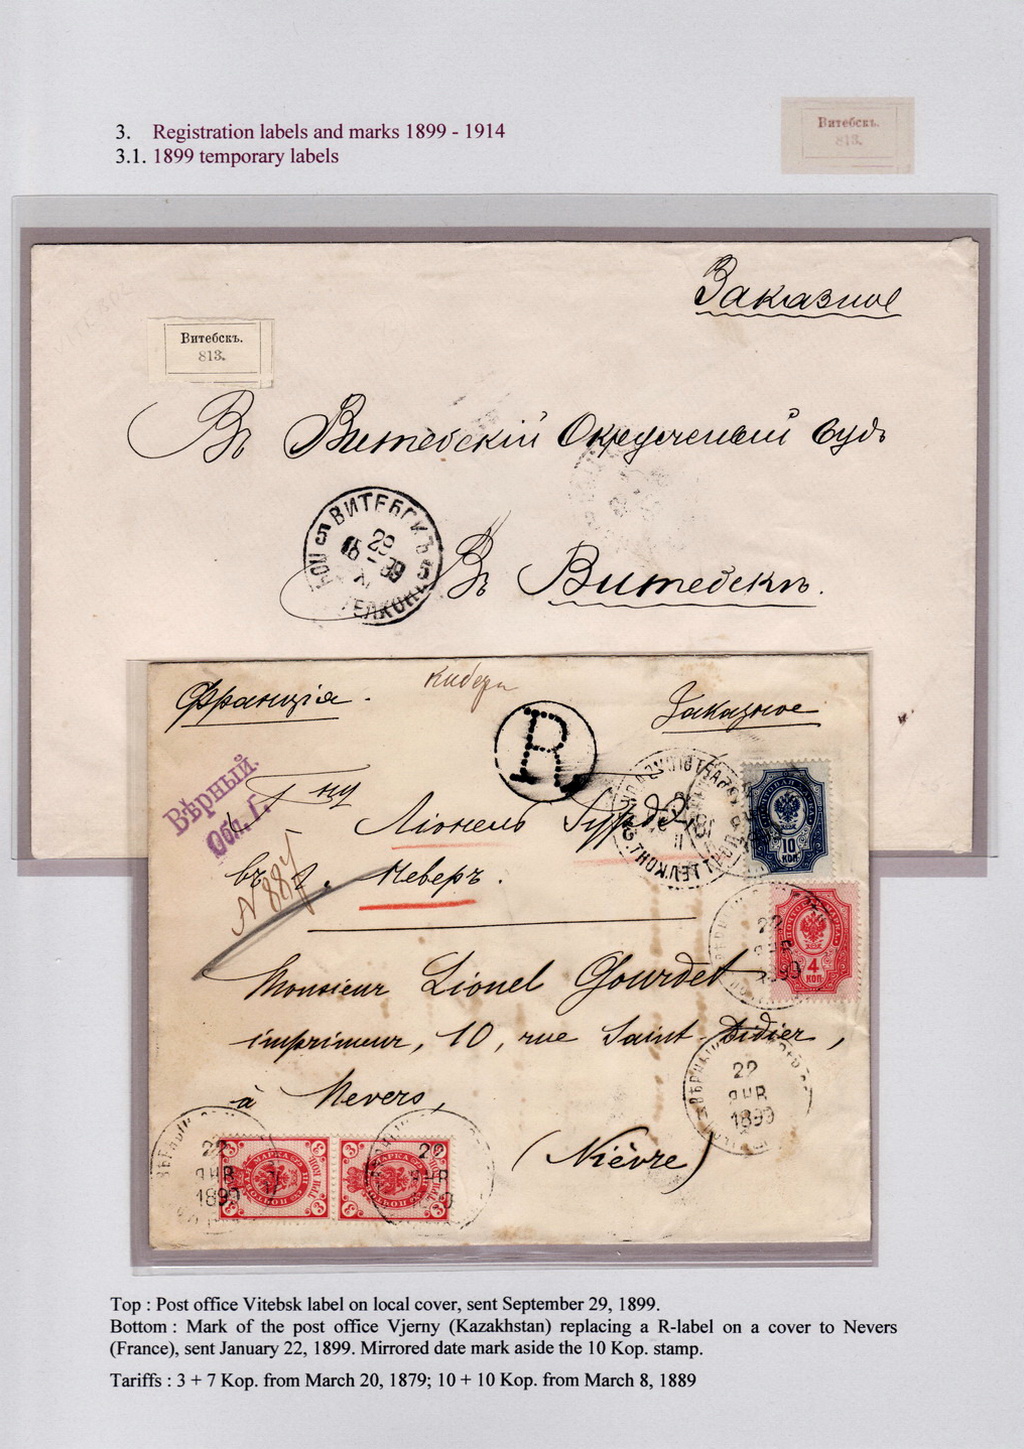 3. Registration labels and marks 1899 - 1914
3.1. 1899 temporary labels
Витебскъ.
813.
Заказное
Витебскъ.
813.
Въ Витебскій Окружный Судъ
ВИТЕБСКЪ
5 5
29
99
Въ Витебскъ.
Франція
Заказное
R
Вѣрный.
Обл. Г.
Ліонель
въ г. Неверъ.
N 887
10
КОП
4
КОП
22
ЯНВ
1899
Monsieur Lionel Gourdet
imprimeur, 10, rue Saint-Didier,
à Nevers,
(Nièvre)
22
ЯНВ
1899
22
ЯНВ
1899
3 3
МАРКА
ТРИ КОП
3 3
МАРКА
ТРИ КОП
22
ЯНВ
Top : Post office Vitebsk label on local cover, sent September 29, 1899.
Bottom : Mark of the post office Vjerny (Kazakhstan) replacing a R-label on a cover to Nevers
(France), sent January 22, 1899. Mirrored date mark aside the 10 Kop. stamp.
Tariffs : 3 + 7 Kop. from March 20, 1879; 10 + 10 Kop. from March 8, 1889